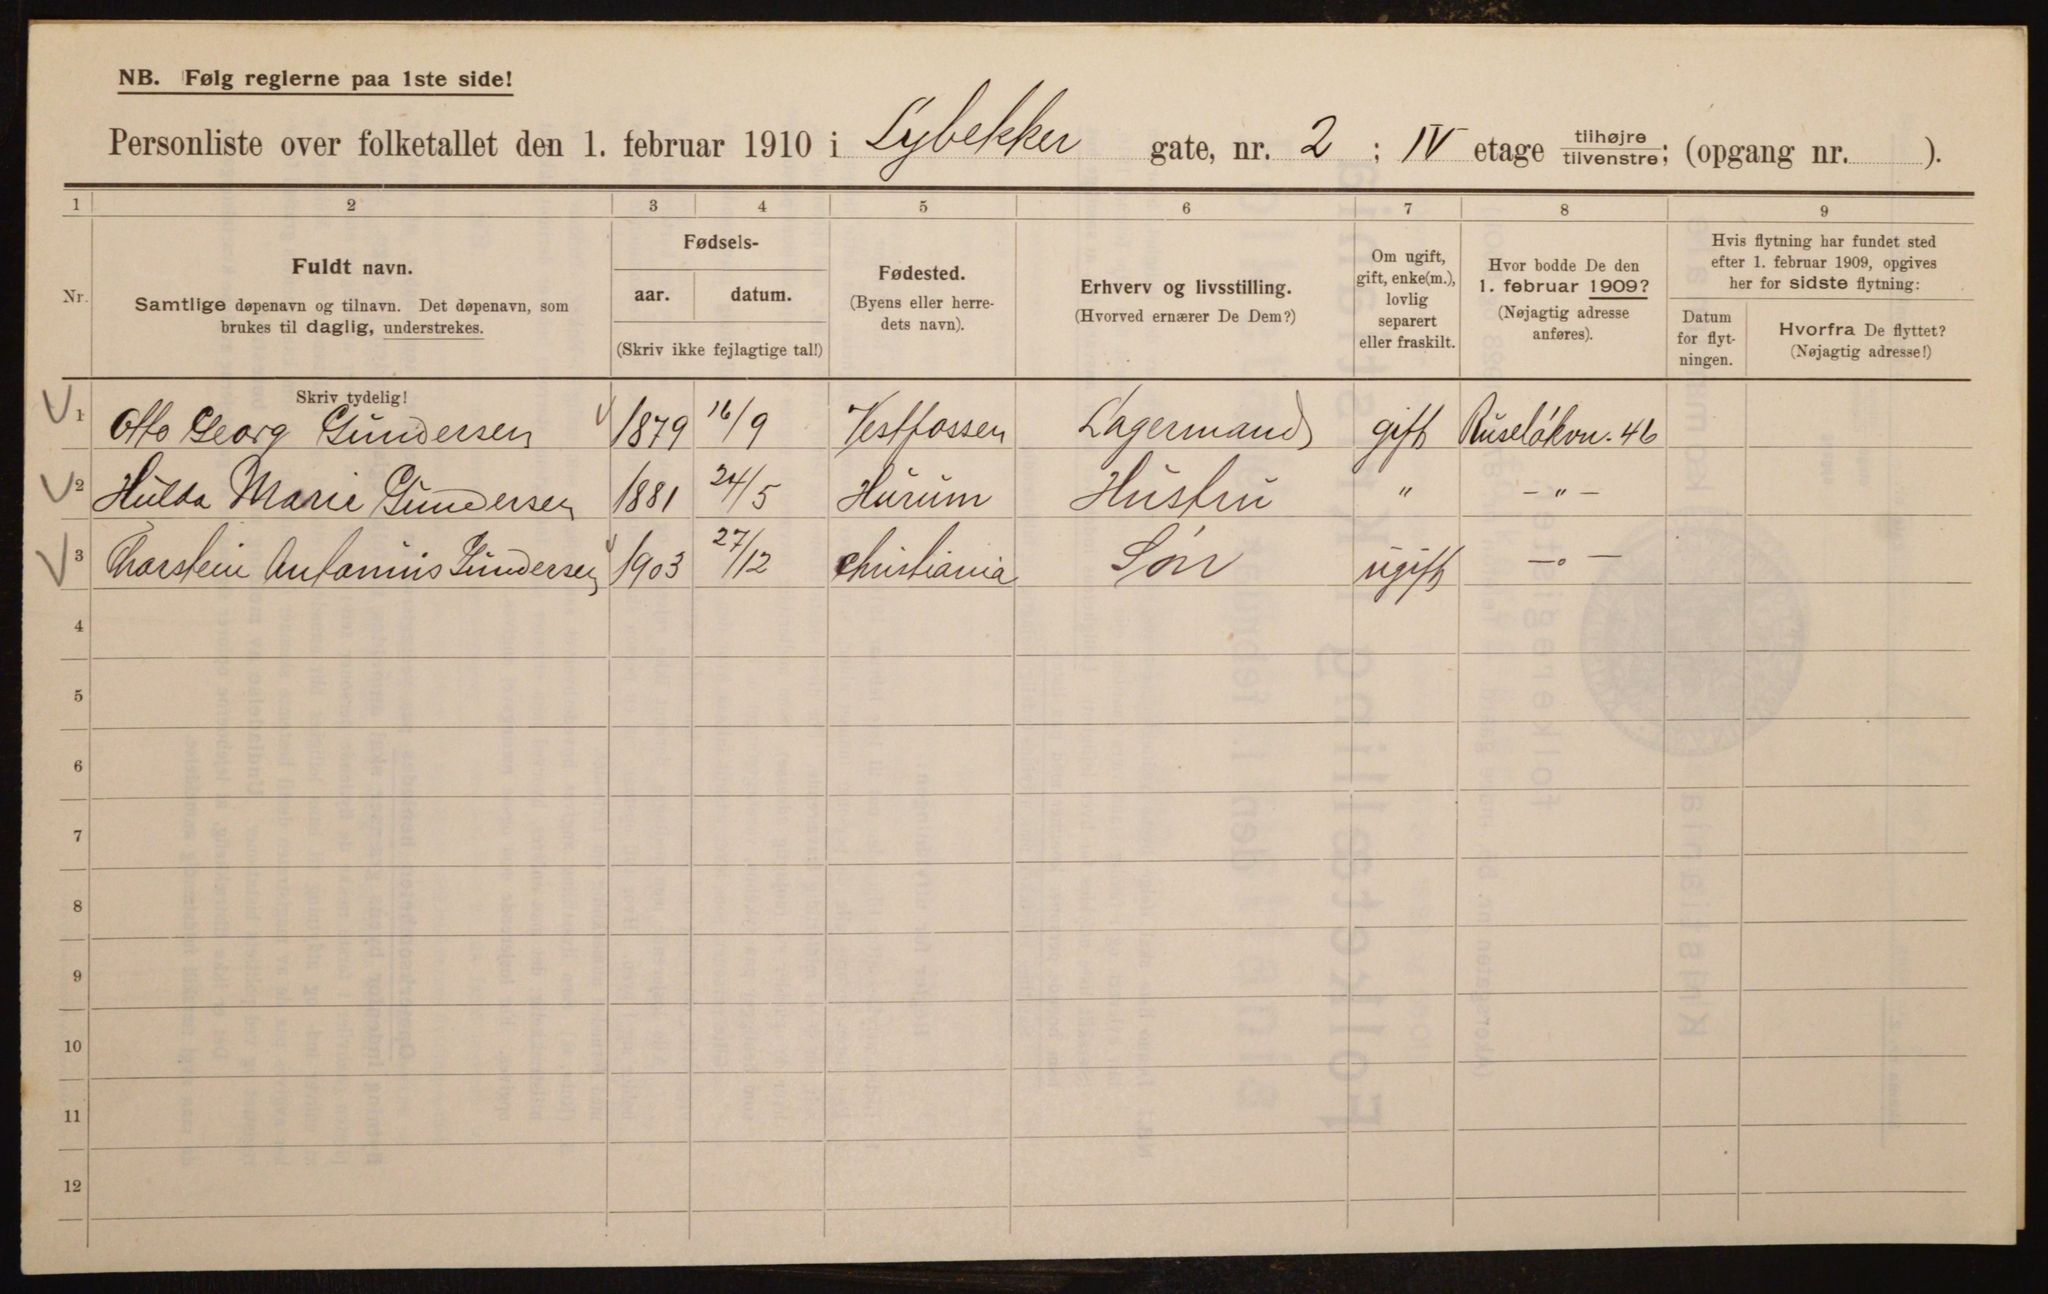 NB. Følg reglerne paa 1ste side!
Personliste over folketallet den 1. februar 1910 i Lybekker gate, nr. 2 ; IV etage tilhøjre/tilvenstre; (opgang nr. ).
1 2 3 4 5 6 7 8 9
Nr.
Fuldt navn.
Samtlige døpenavn og tilnavn. Det døpenavn, som
brukes til daglig, understrekes.
Fødsels-
aar. datum.
(Skriv ikke fejlagtige tal!)
Fødested.
(Byens eller herre-
dets navn).
Erhverv og livsstilling.
(Hvorved ernærer De Dem?)
Om ugift,
gift, enke(m.),
lovlig
separert
eller fraskilt.
Hvor bodde De den
1. februar 1909?
(Nøjagtig adresse
anføres).
Hvis flytning har fundet sted
efter 1. februar 1909, opgives
her for sidste flytning:
Datum
for flyt-
ningen.
Hvorfra De flyttet?
(Nøjagtig adresse!)
Skriv tydelig!
1 Otto Georg Gundersen 1879 16/9 Vestfossen Lagermand gift Ruseløkvn. 46
2 Hulda Marie Gundersen 1881 24/5 Hurum Hustru " — " —
3 Thorstein Antonius Gundersen 1903 27/12 Christiania Søn ugift — " —
4
5
6
7
8
9
10
11
12